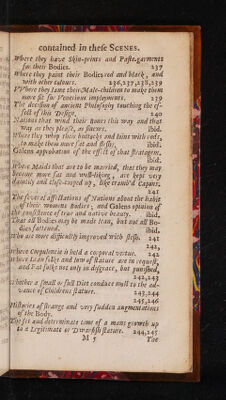 contained in these SCENES.
Where they have Skin-prints and Paste-garments
for their Bodies. 237
Where they paint their Bodies red and black, and
with other colours. 236,237,238,239
VVhere they lame their Male-children to make them
more fit for Venerious imployments. 239
The decision of ancient Philosophy touching the ef-
fect of this Design. 240
Nations that wind their Bones this way and that
way as they please, as sinews. ibid.
Where they whip their buttocks and loins with rods,
to make them more fat and fleshy. ibid.
Galens approbation of the effect of that stratagem.
ibid.
Where Maids that are to be married, that they may
become more fat and well-liking, are kept very
daintily and close-cooped up, like cramm'd Capons.
241
The several affectations of Nations about the habit
of their womens Bodies; and Galens opinion of
the conscience of true and native beauty. ibid.
That all Bodies may be made lean, but not all Bo-
dies fattened. ibid.
Who are more difficultly improved with flesh. 241
242,
Where Corpulencie is held a corporal vertue. 242
Where Lean folke and low of stature are in request,
and Fat folks not only in disgrace, but punished,
242,243
Whether a small or full Diet conduce most to the ad-
vance of Childrens stature. 243,244
245,246
Histories of strange and very sudden augmentations
of the Body.
The set and determinate time of a mans growth up
to a Legitimate or Dwarfish stature. 244,245
M 5 The